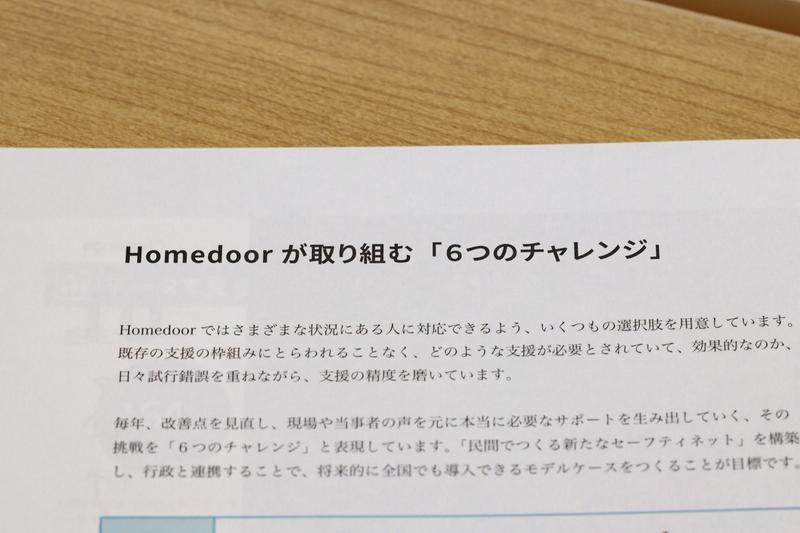 Homedoor が取り組む「6つのチャレンジ」
Homedoor ではさまざまな状況にある人に対応できるよう、いくつもの選択肢を用意しています。
既存の支援の枠組みにとらわれることなく、どのような支援が必要とされていて、効果的なのか、
日々試行錯誤を重ねながら、支援の精度を磨いています。
毎年、改善点を見直し、現場や当事者の声を元に本当に必要なサポートを生み出していく、その
挑戦を「6つのチャレンジ」と表現しています。「民間でつくる新たなセーフティネット」を構築
し、行政と連携することで、将来的に全国でも導入できるモデルケースをつくることが目標です。